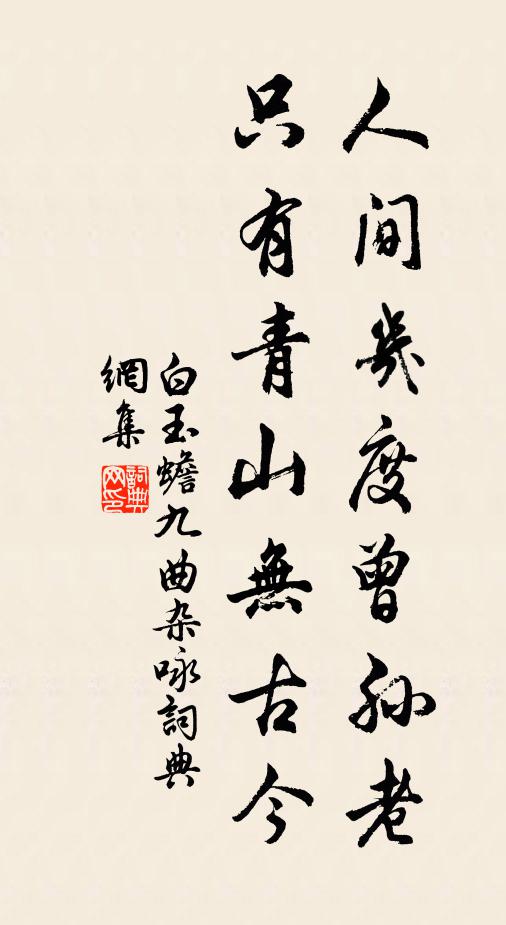 人间幾度曾孙老
只有青山無古今
白玉蟾九曲杂咏詞典
網集
詞典
网印